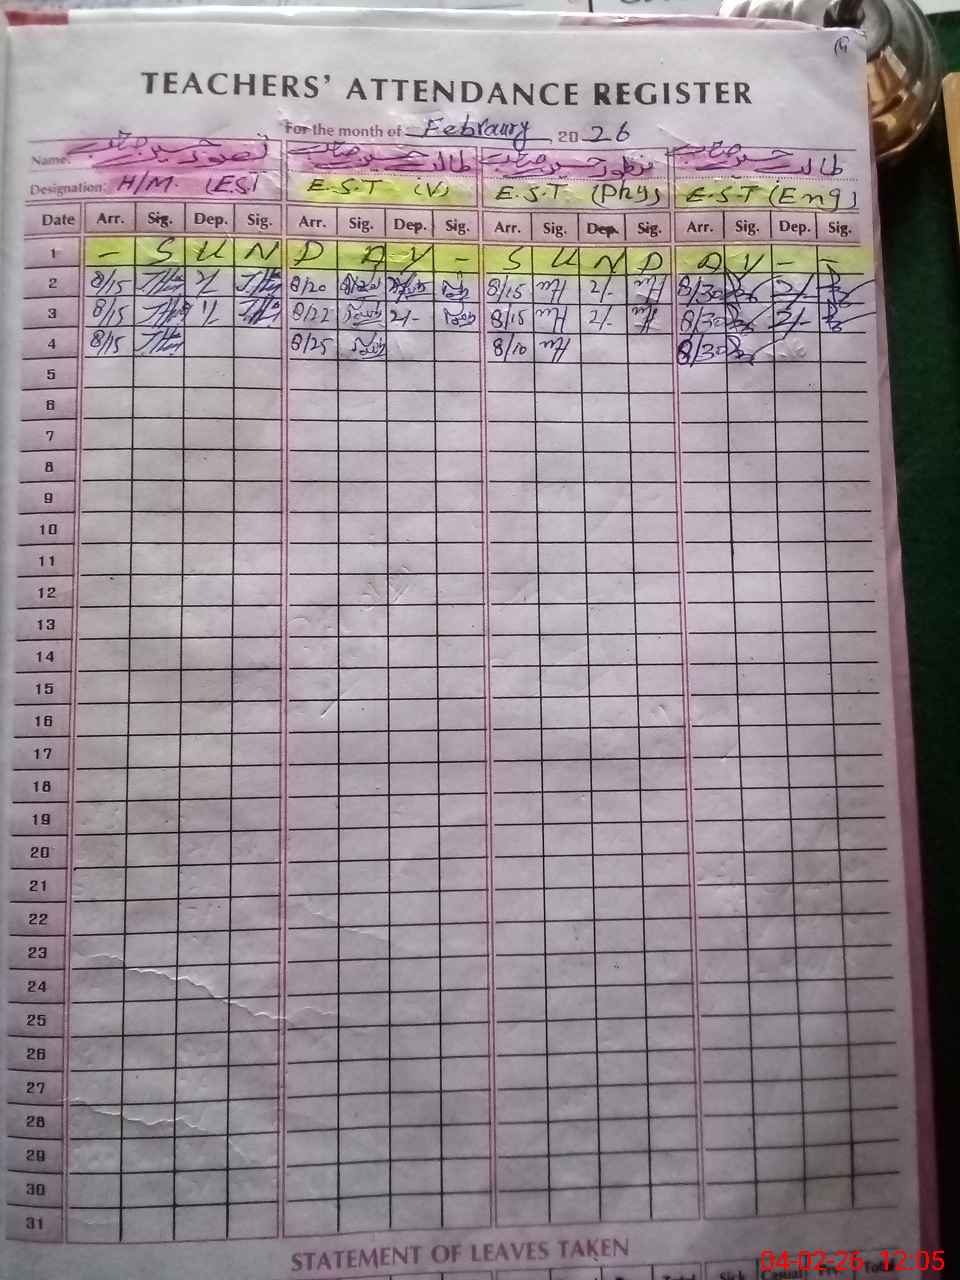 TEACHERS' ATTENDANCE REGISTER
For the month of Febraury 2026
Name: تصور حسین صاحب طالب حسین صاحب منظور حسین صاحب طالب حسین صاحب
Designation: H/M. (EST E.S.T (V) E.S.T (Phy) E.S.T (Eng)
Date Arr. Sig. Dep. Sig. Arr. Sig. Dep. Sig. Arr. Sig. Dep. Sig. Arr. Sig. Dep. Sig.
1 - S U N D A Y - S U N D A Y - -
2 8/15 8/20 8/15 2/- 8/30 2/-
3 8/15 8/22 2/- 8/15 2/- 8/30 2/-
4 8/15 8/25 8/10 8/30
5
6
7
8
9
10
11
12
13
14
15
16
17
18
19
20
21
22
23
24
25
26
27
28
29
30
31
STATEMENT OF LEAVES TAKEN
04-02-26 12:05